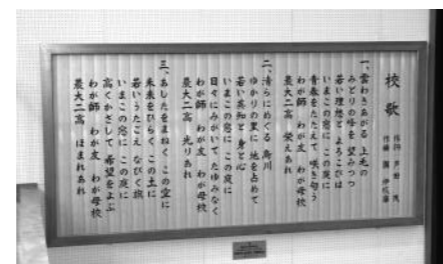 校歌
一、雲わきあがる 上毛の
みどりの峰を 望みつつ
若い理想と よろこびは
いまこの窓に この庭に
青春をたたえて 咲き匂う
わが師 わが友 わが母校
農大二高 栄えあれ
二、清らにめぐる 烏川
ゆかりの里に 地を占めて
若い英知と 身と心
いまこの窓に この庭に
日々にみがいて たゆみなく
わが師 わが友 わが母校
農大二高 光りあれ
三、あしたをまねく この空に
未来をひらく この土に
若いうたごえ なびく旗
いまこの窓に この庭に
高くかざして 希望をよぶ
わが師 わが友 わが母校
農大二高 ほまれあれ